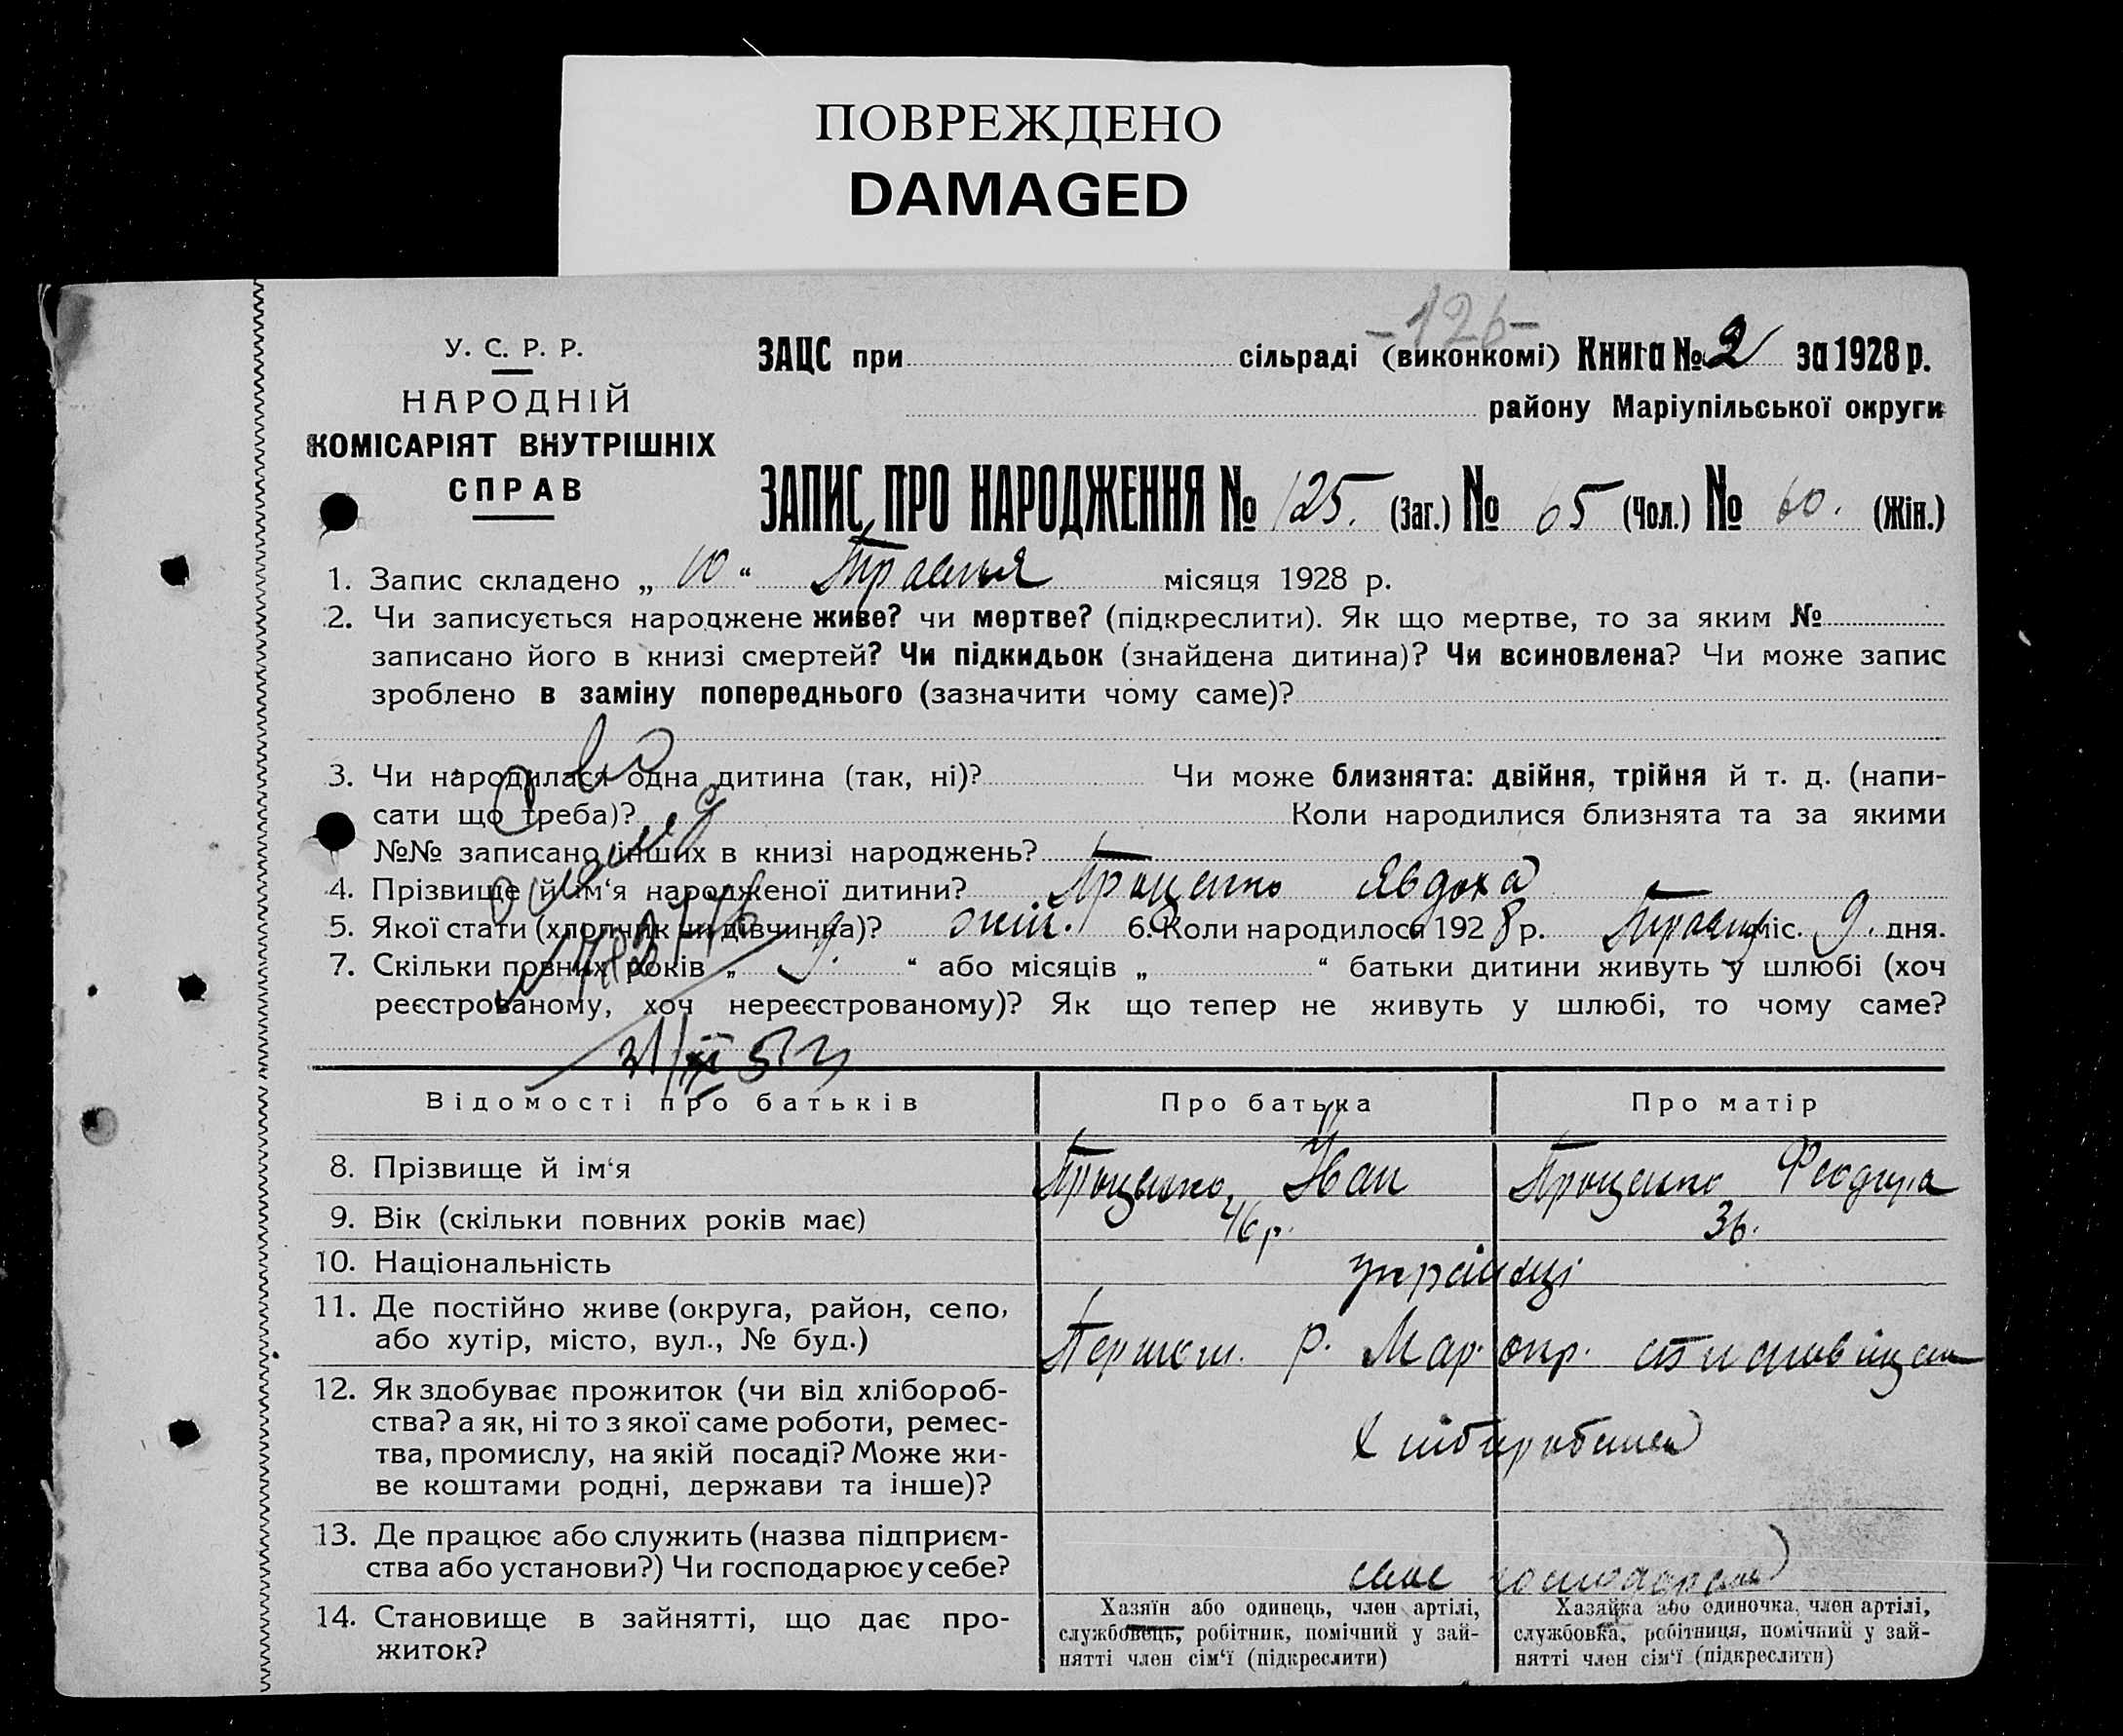 ПОВРЕЖДЕНО
DAMAGED
-126-
У. С. Р. Р.
НАРОДНІЙ
КОМІСАРІЯТ ВНУТРІШНІХ
СПРАВ
ЗАЦС при сільраді (виконкомі) Книга № 2 за 1928 р.
району Маріупільської округи
ЗАПИС ПРО НАРОДЖЕННЯ № 125. (Заг.) № 65 (Чол.) № 60. (Жін.)
1. Запис складено „ 10 “ Травня місяця 1928 р.
2. Чи записується народжене живе? чи мертве? (підкреслити). Як що мертве, то за яким №
записано його в книзі смертей? Чи підкидьок (знайдена дитина)? Чи всиновлена? Чи може запис
зроблено в заміну попереднього (зазначити чому саме)?
3. Чи народилася одна дитина (так, ні)? Чи може близнята: двійня, трійня й т. д. (напи-
сати що треба)? Коли народилися близнята та за якими
№№ записано інших в книзі народжень?
4. Прізвище й ім‘я народженої дитини? Проценко Явдоха
5. Якої стати (хлопчик чи дівчинка)? жін. 6. Коли народилося 1928 р. Травня міс. 9. дня.
7. Скільки повних років „ 9. “ або місяців „ “ батьки дитини живуть у шлюбі (хоч
реєстрованому, хоч нереєстрованому)? Як що тепер не живуть у шлюбі, то чому саме?
Відомості про батьків Про батька Про матір
8. Прізвище й ім‘я Проценко Іван Проценко
9. Вік (скільки повних років має) 46 р. 36.
10. Національність українці
11. Де постійно живе (округа, район, село,
або хутір, місто, вул., № буд.) р. Мар. окр.
12. Як здобуває прожиток (чи від хлібороб-
ства? а як, ні то з якої саме роботи, ремес-
тва, промислу, на якій посаді? Може жи-
ве коштами родні, держави та інше)?
13. Де працює або служить (назва підприєм-
ства або установи?) Чи господарює у себе?
14. Становище в зайнятті, що дає про-
житок?
Хазяїн або одинець, член артілі,
службовець, робітник, помічний у зай-
нятті член сім‘ї (підкреслити)
Хазяйка або одиночка, член артілі,
службовка, робітниця, помічний у зай-
нятті член сім‘ї (підкреслити)